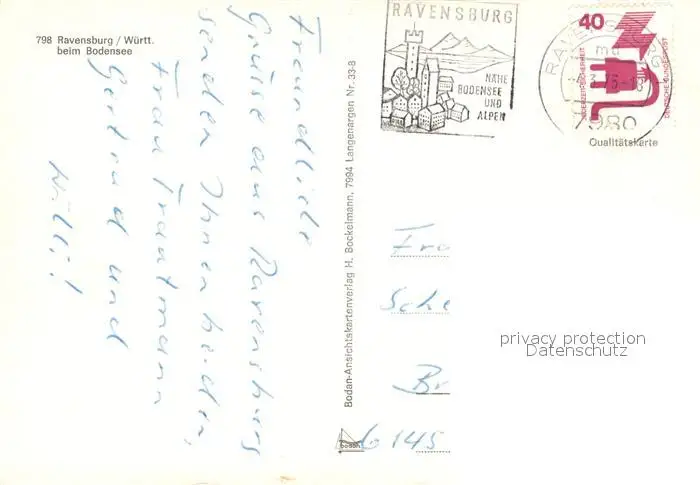 798 Ravensburg / Württ.
beim Bodensee
Freundliche
Grüße aus Ravensburg
senden Ihnen beiden,
Frau Trautmann
Gertrud und
Willi!
Bodan-Ansichtskartenverlag H. Bockelmann, 7994 Langenargen Nr. 33-8
bodan
RAVENSBURG
NÄHE
BODENSEE
UND
ALPEN
RAVENSBURG
7980
40
JEDERZEIT SICHERHEIT
DEUTSCHE BUNDESPOST
Qualitätskarte
Fra
Sche
Br
6145
privacy protection
Datenschutz